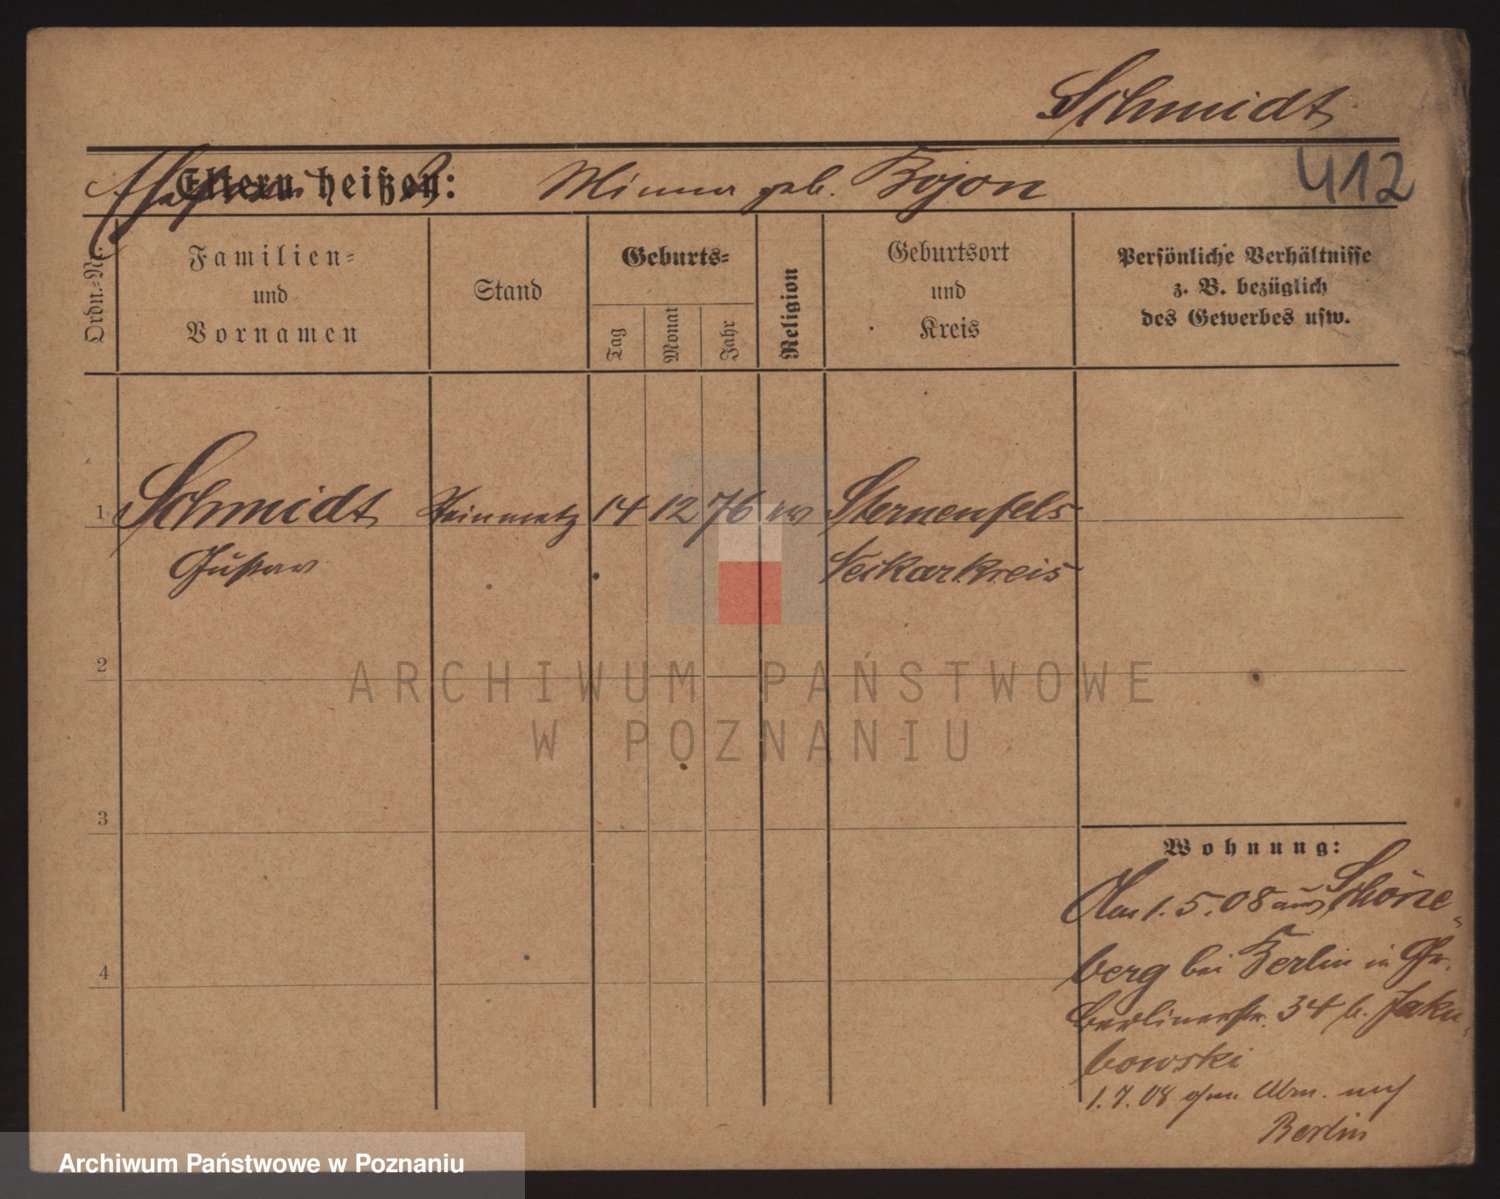 Schmidt
Eltern heißen:
Minna geb. Bojon
412
Ordn.-Nr.
Familien-
und
Vornamen
Stand
Geburts-
Tag
Monat
Jahr
Religion
Geburtsort
und
Kreis
Persönliche Verhältnisse
z. B. bezüglich
des Gewerbes usw.
1 Schmidt Steinmetz 14 12 76 ev Sternenfels
Gustav Neckarkreis
2
3
4
Wohnung:
Am 1. 5. 08 aus Schöne-
berg bei Berlin in Gr.
Berlinerstr. 34 b. Jaku-
bowski
1. 7. 08 ohne Abm. nach
Berlin
ARCHIWUM PAŃSTWOWE
W POZNANIU
Archiwum Państwowe w Poznaniu